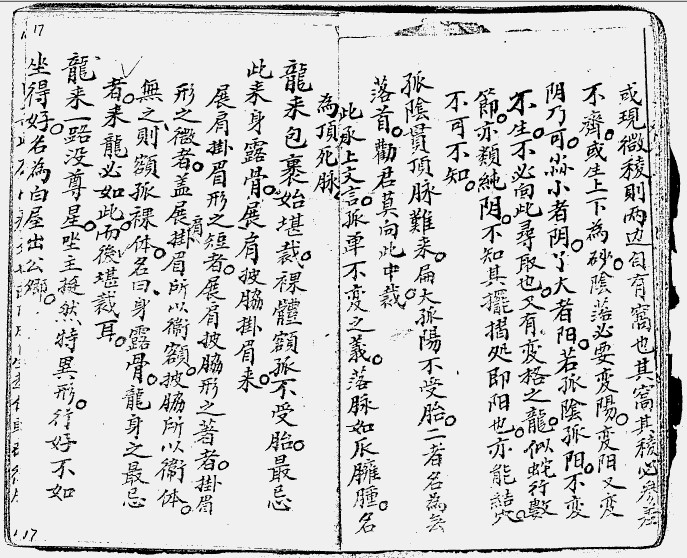 17
或現微稜則两边自有窩也其窩其稜必參差
不齊。或生上下為砂。陰落必要変陽。変阳又変
阴乃可。𦕈小者阴。了大者阳。若孤陰孤阳。不変
不生。不必向此尋取也。又有変格之龍。似蛇行數
節。亦類純阴。不知其擺摺処即阳也。亦能結穴。
不可不知。
孤陰貫頂脉難来。扁大孤陽不受胎。二者名為玄
落首。勸君莫向此中裁。
此承上文言。孤单不変之義。落脉如瓜臃腫。名
為頂死脉。
龍来包裹始堪裁。裸體額孤不受胎。最忌
此来身露骨。展肩披脇掛眉来
展肩掛眉形之短者。展肩披脇形之著者。掛眉
形之微者。盖展肩掛眉所以衞額。披脇所以衞体。
無之則額孤裸体。名曰身露骨。龍身之最忌
者。来龍必如此。而後堪裁耳。
龍来一路没尊星。坐主挺然特異形。行好不如
坐得好。名為白屋出公卿。
17